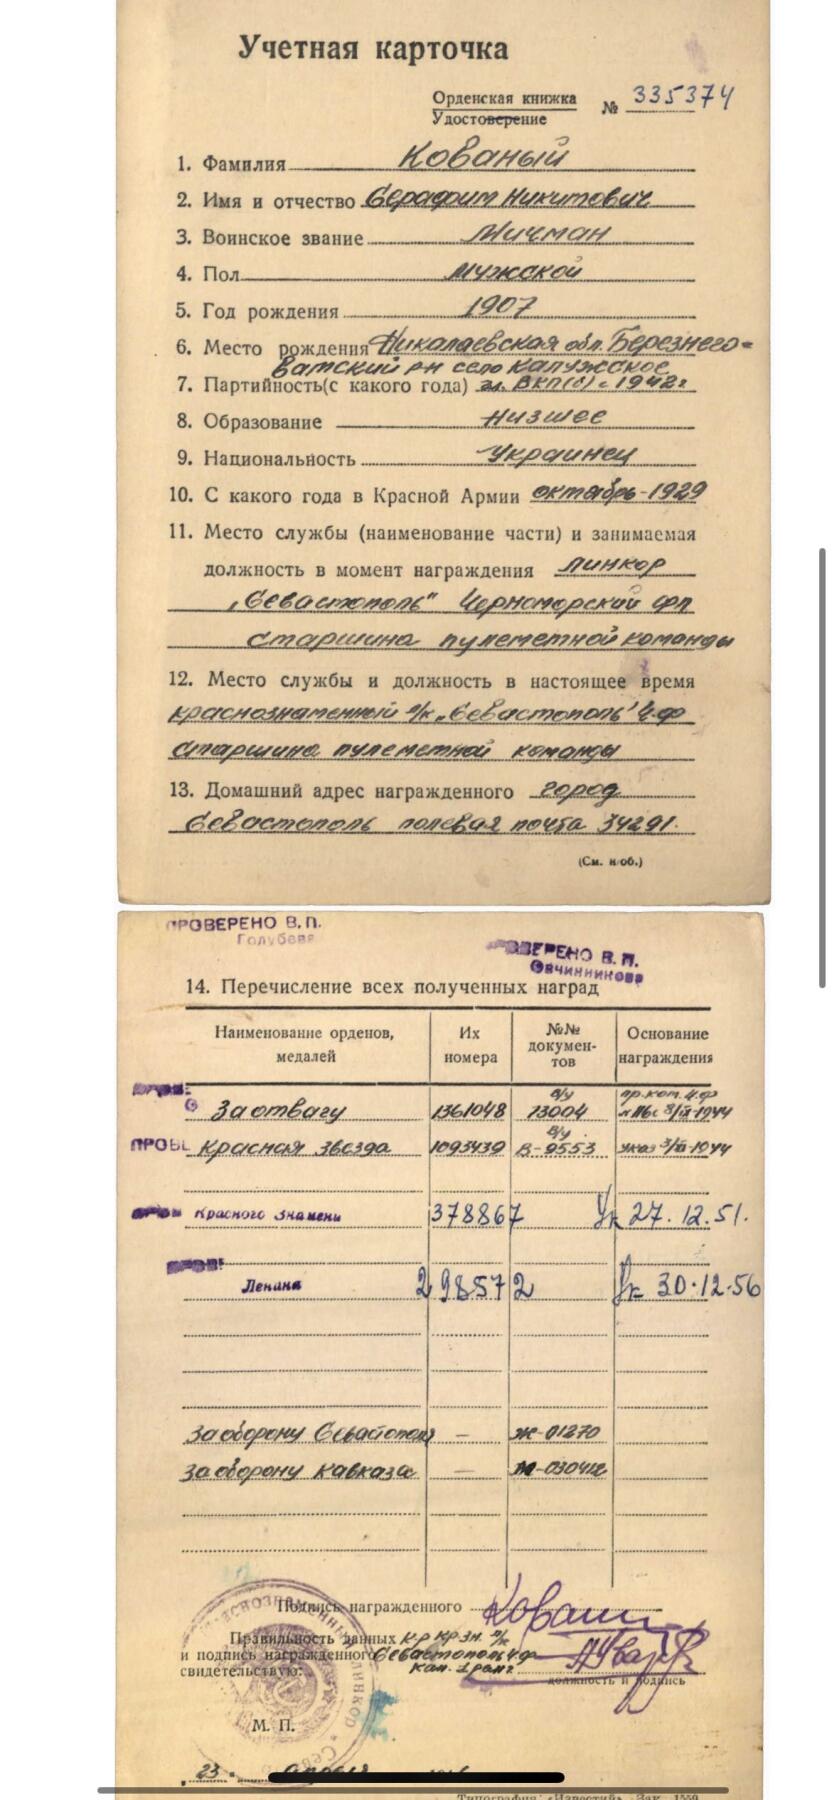 Учетная карточка
Орденская книжка № 335374
Удостоверение
1. Фамилия Кованый
2. Имя и отчество Серафим Никитович
3. Воинское звание Мичман
4. Пол мужской
5. Год рождения 1907
6. Место рождения Николаевская обл. Березнего-
ватский р-н село Калужское
7. Партийность(с какого года) чл. ВКП(б) с 1942г
8. Образование низшее
9. Национальность Украинец
10. С какого года в Красной Армии октябрь-1929
11. Место службы (наименование части) и занимаемая
должность в момент награждения линкор
„Севастополь" Черноморский фл
старшина пулеметной команды
12. Место службы и должность в настоящее время
краснознаменный л/к „Севастополь" Ч.Ф
старшина пулеметной команды
13. Домашний адрес награжденного город
Севастополь полевая почта 34291.
(См. н/об.)
ПРОВЕРЕНО В. П.
Голубева
ПРОВЕРЕНО В. П.
Овчинникова
14. Перечисление всех полученных наград
Наименование орденов, медалей Их номера №№ докумен-тов Основание награждения
За отвагу 1361048 в/у 73004 Ч.Ф 1944
Красная звезда 1093439 в/у В-9553 указ 1944
Красного Знамени 378867 Ук 27.12.51.
Ленина 298572 Ук 30.12.56
За оборону Севастополя — Ж-01270
За оборону Кавказа — М-030412
Подпись награжденного
Правильность данных к-р кр.зн. л/к
и подпись награжденного Севастополь Ч.Ф
свидетельствую: кап. 1 ранг
должность и подпись
М. П.
23
Типография «Известий» Зак. 1559